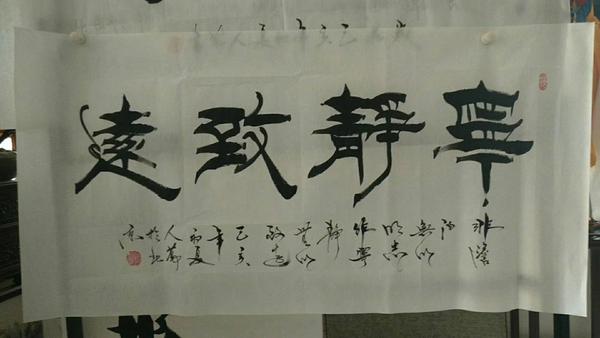 寧靜致遠
非澹
泊
無以
明志
非寧
靜
無以
致遠
己亥
年
初夏